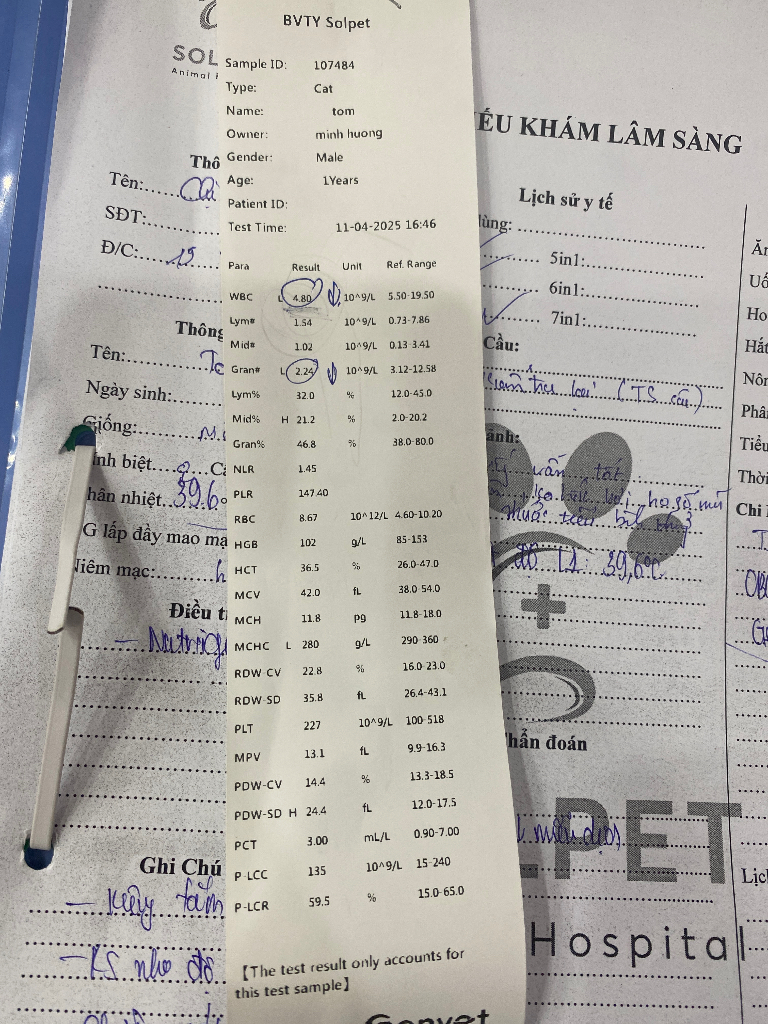 BVTY Solpet
SOL
Animal
Sample ID: 107484
Type: Cat
Name: tom
Owner: minh huong
Gender: Male
Age: 1Years
Patient ID:
Test Time: 11-04-2025 16:46
Para Result Unit Ref. Range
WBC L 4.80 10^9/L 5.50-19.50
Lym# 1.54 10^9/L 0.73-7.86
Mid# 1.02 10^9/L 0.13-3.41
Gran# L 2.24 10^9/L 3.12-12.58
Lym% 32.0 % 12.0-45.0
Mid% H 21.2 % 2.0-20.2
Gran% 46.8 % 38.0-80.0
NLR 1.45
PLR 147.40
RBC 8.67 10^12/L 4.60-10.20
HGB 102 g/L 85-153
HCT 36.5 % 26.0-47.0
MCV 42.0 fL 38.0-54.0
MCH 11.8 pg 11.8-18.0
MCHC L 280 g/L 290-360
RDW-CV 22.8 % 16.0-23.0
RDW-SD 35.8 fL 26.4-43.1
PLT 227 10^9/L 100-518
MPV 13.1 fL 9.9-16.3
PDW-CV 14.4 % 13.3-18.5
PDW-SD H 24.4 fL 12.0-17.5
PCT 3.00 mL/L 0.90-7.00
P-LCC 135 10^9/L 15-240
P-LCR 59.5 % 15.0-65.0
【The test result only accounts for
this test sample】
Genvet
Thô
Tên:
SĐT:
Đ/C: 15
Thông
Tên:
Ngày sinh:
Giống:
nh biệt
hân nhiệt 39,6
G lấp đầy mao mạ
Niêm mạc:
Điều t
Ghi Chú
- Kiêng tắm
- KS nhà đó
ẾU KHÁM LÂM SÀNG
Lịch sử y tế
ùng:
5in1:
6in1:
7in1:
Cầu:
ảnh:
vấn tắt
L1: 39,6°C
hẩn đoán
LPET
Hospital
Ăn
Uố
Ho
Hắt
Nôn
Phâ
Tiểu
Thời
Chỉ
Lịc